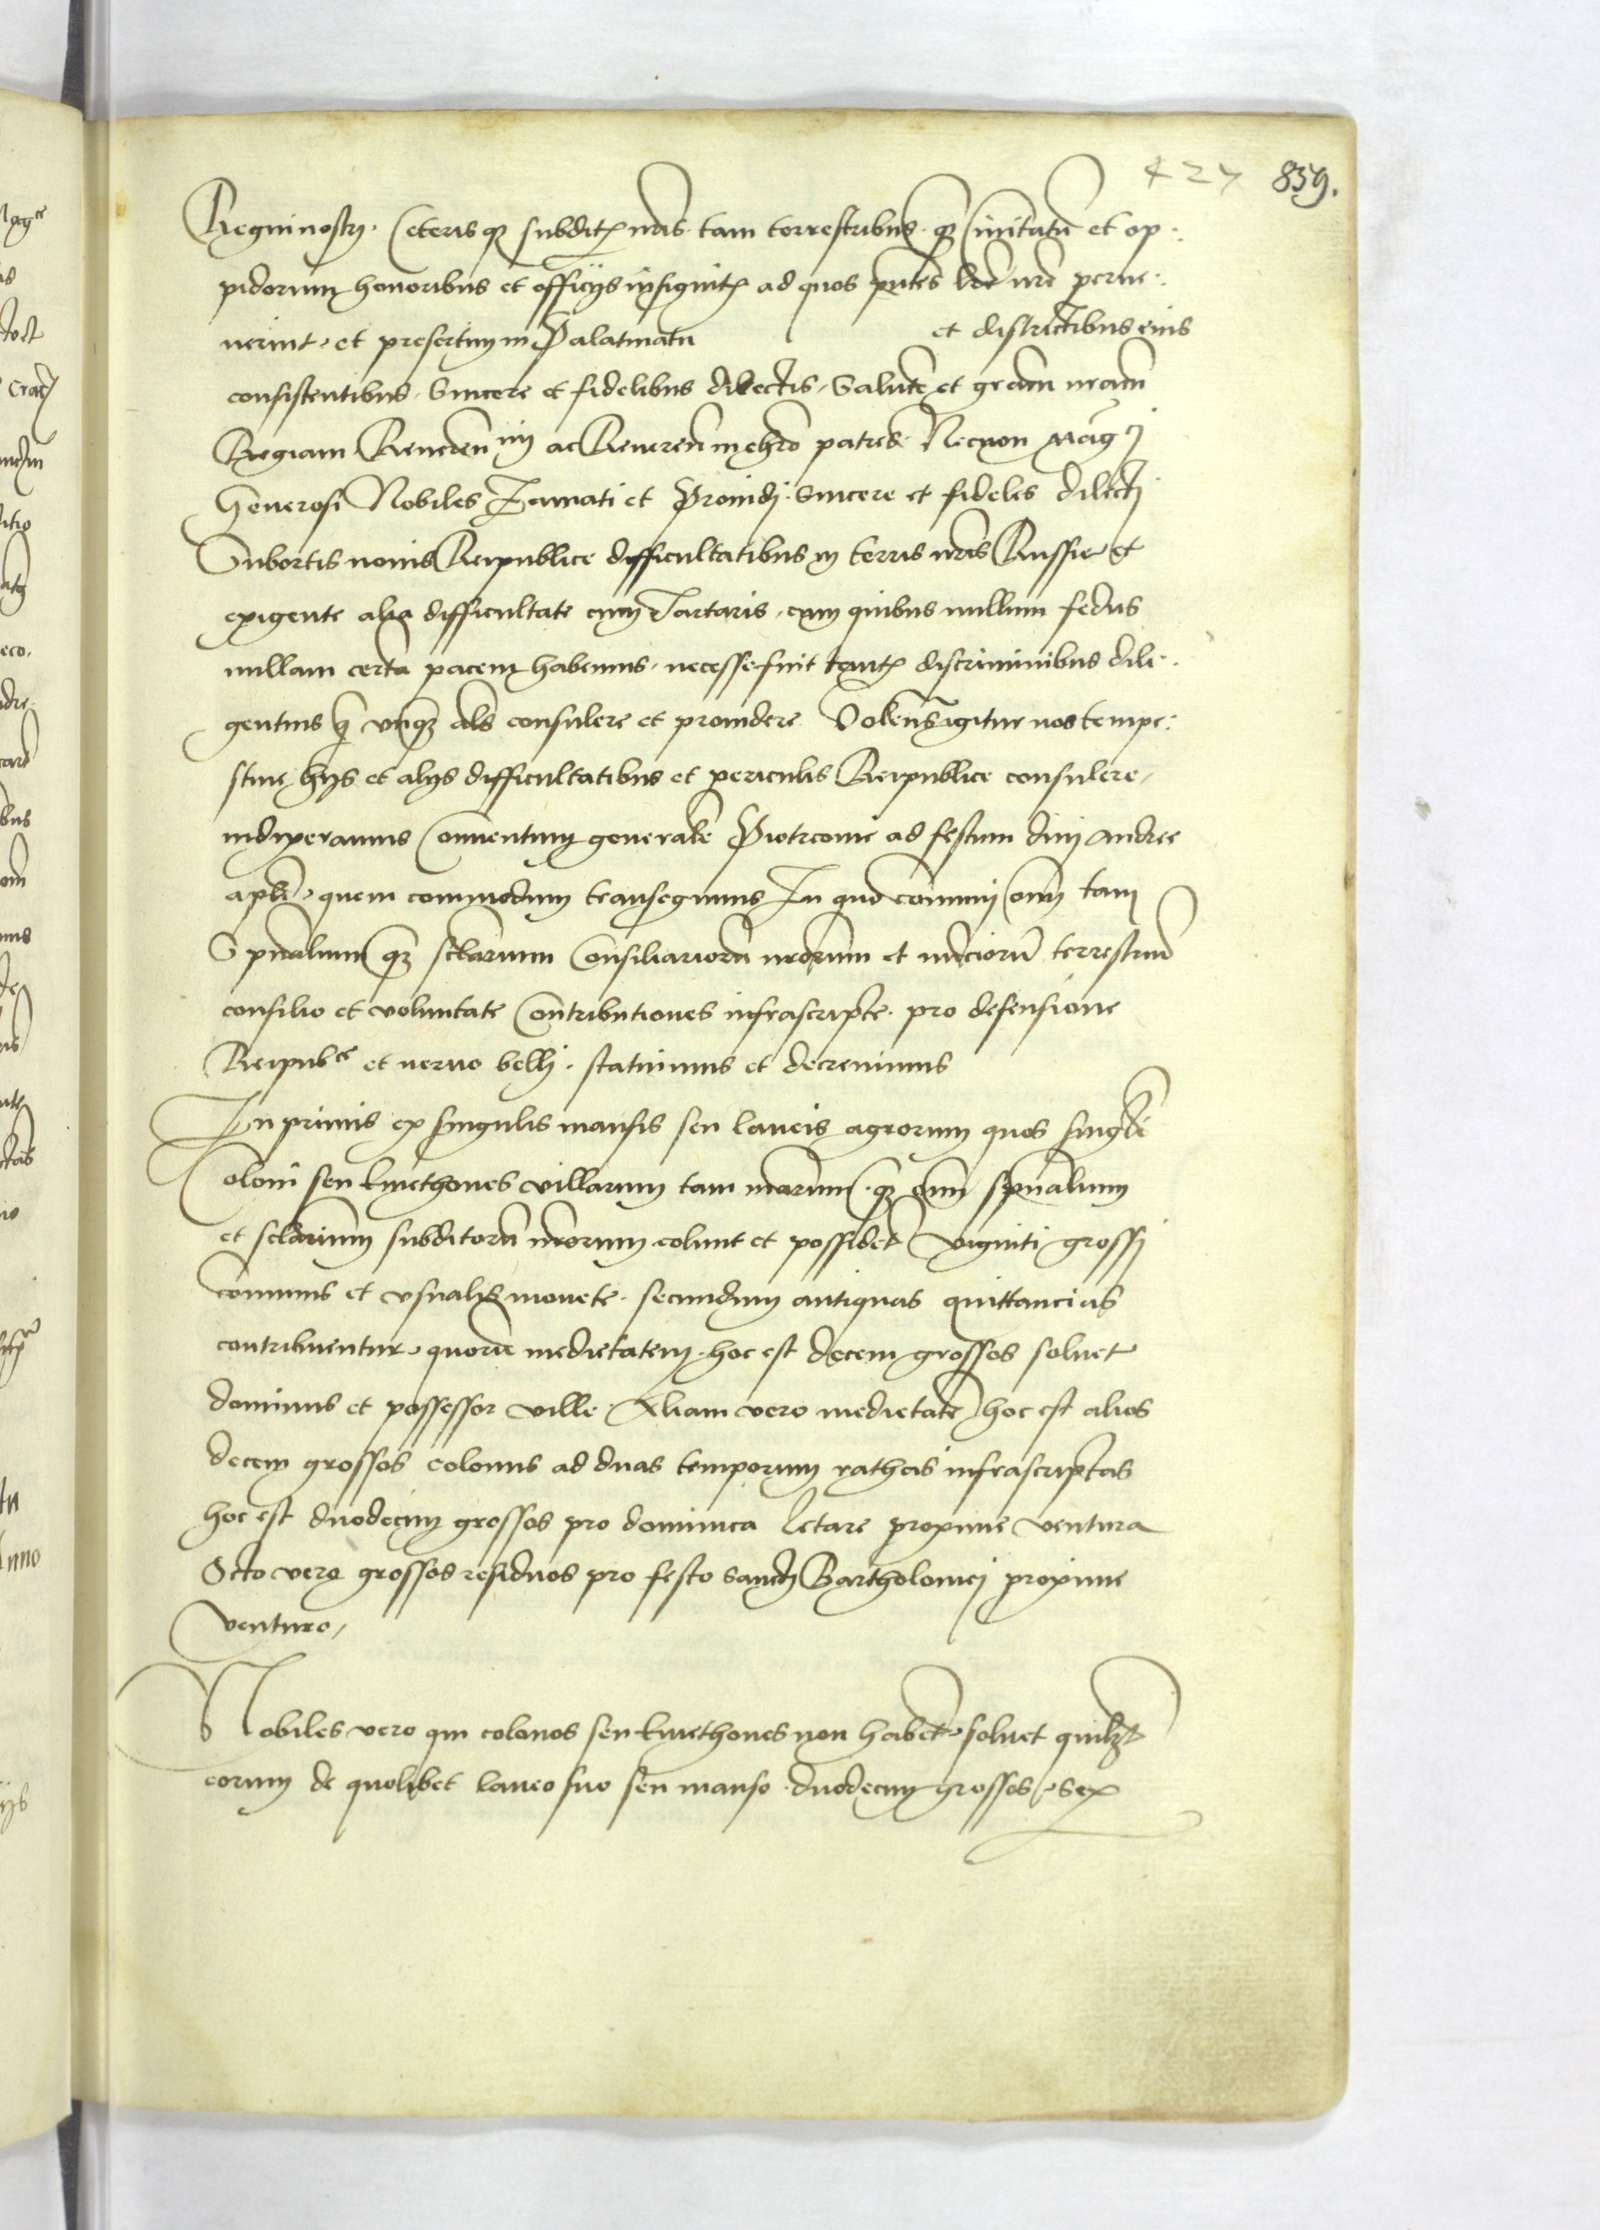 427 859.
Regni nostri. Ceterisque subditis nris tam terrestribus. quam Civitatum et op:
pidorum honoribus et officiis insignitis ad quos pntes lre nre perve:
nerint. et presertim in Palatinatu et districtibus eius
consistentibus. Sincere et fidelibus dilectis. Salutem et gram nram
Regiam Reverendmi ac Reverend in chro patres. Necnon Magci
Generosi Nobiles Famati et Providi. Sincere et fideles dilecti
Subortis novis Reipublice difficultatibus in terris nris Russie et
exigente alia difficultate cum Tartaris. cum quibus nullum fedus
nullam certam pacem habemus. necesse fuit tantis discriminibus dili:
gentius quam unquam als consulere et providere. Volentes igitur nos tempe:
stive hiis et aliis difficultatibus et periculis Reipublice consulere.
indixeramus Conventum generalem Piotrcovie ad festum divi Andree
apli. quem commodum transegimus. In quo communi omnium tam
Spualium quam sclarium Consiliariorum nrorum et nuncciorum terrestrium
consilio et voluntate Contributiones infrascripte. pro defensione
Reipubce et nervo belli. statuimus et decrevimus
In primis ex singulis mansis seu laneis agrorum quos singuli
Coloni seu kmethones villarum tam nrarum. quam omnium spualium
et sclarium subditorum nrorum colunt et possident Viginti grossi
communis et usualis monete. secundum antiquas quittancias
contribuentur. quorum medietatem. hoc est decem grossos solvet
dominus et possessor ville. Aliam vero medietatem hoc est alios
decem grossos colonus ad duas temporum rathas infrascriptas
hoc est duodecim grossos pro dominica letare proxime ventura
Octo vero grossos residuos pro festo sancti Bartholomei proxime
venturo.
Nobiles vero qui colonos seu kmethones non habent. solvet quilibet
eorum de quolibet laneo suo seu manso. duodecim grossos. sex